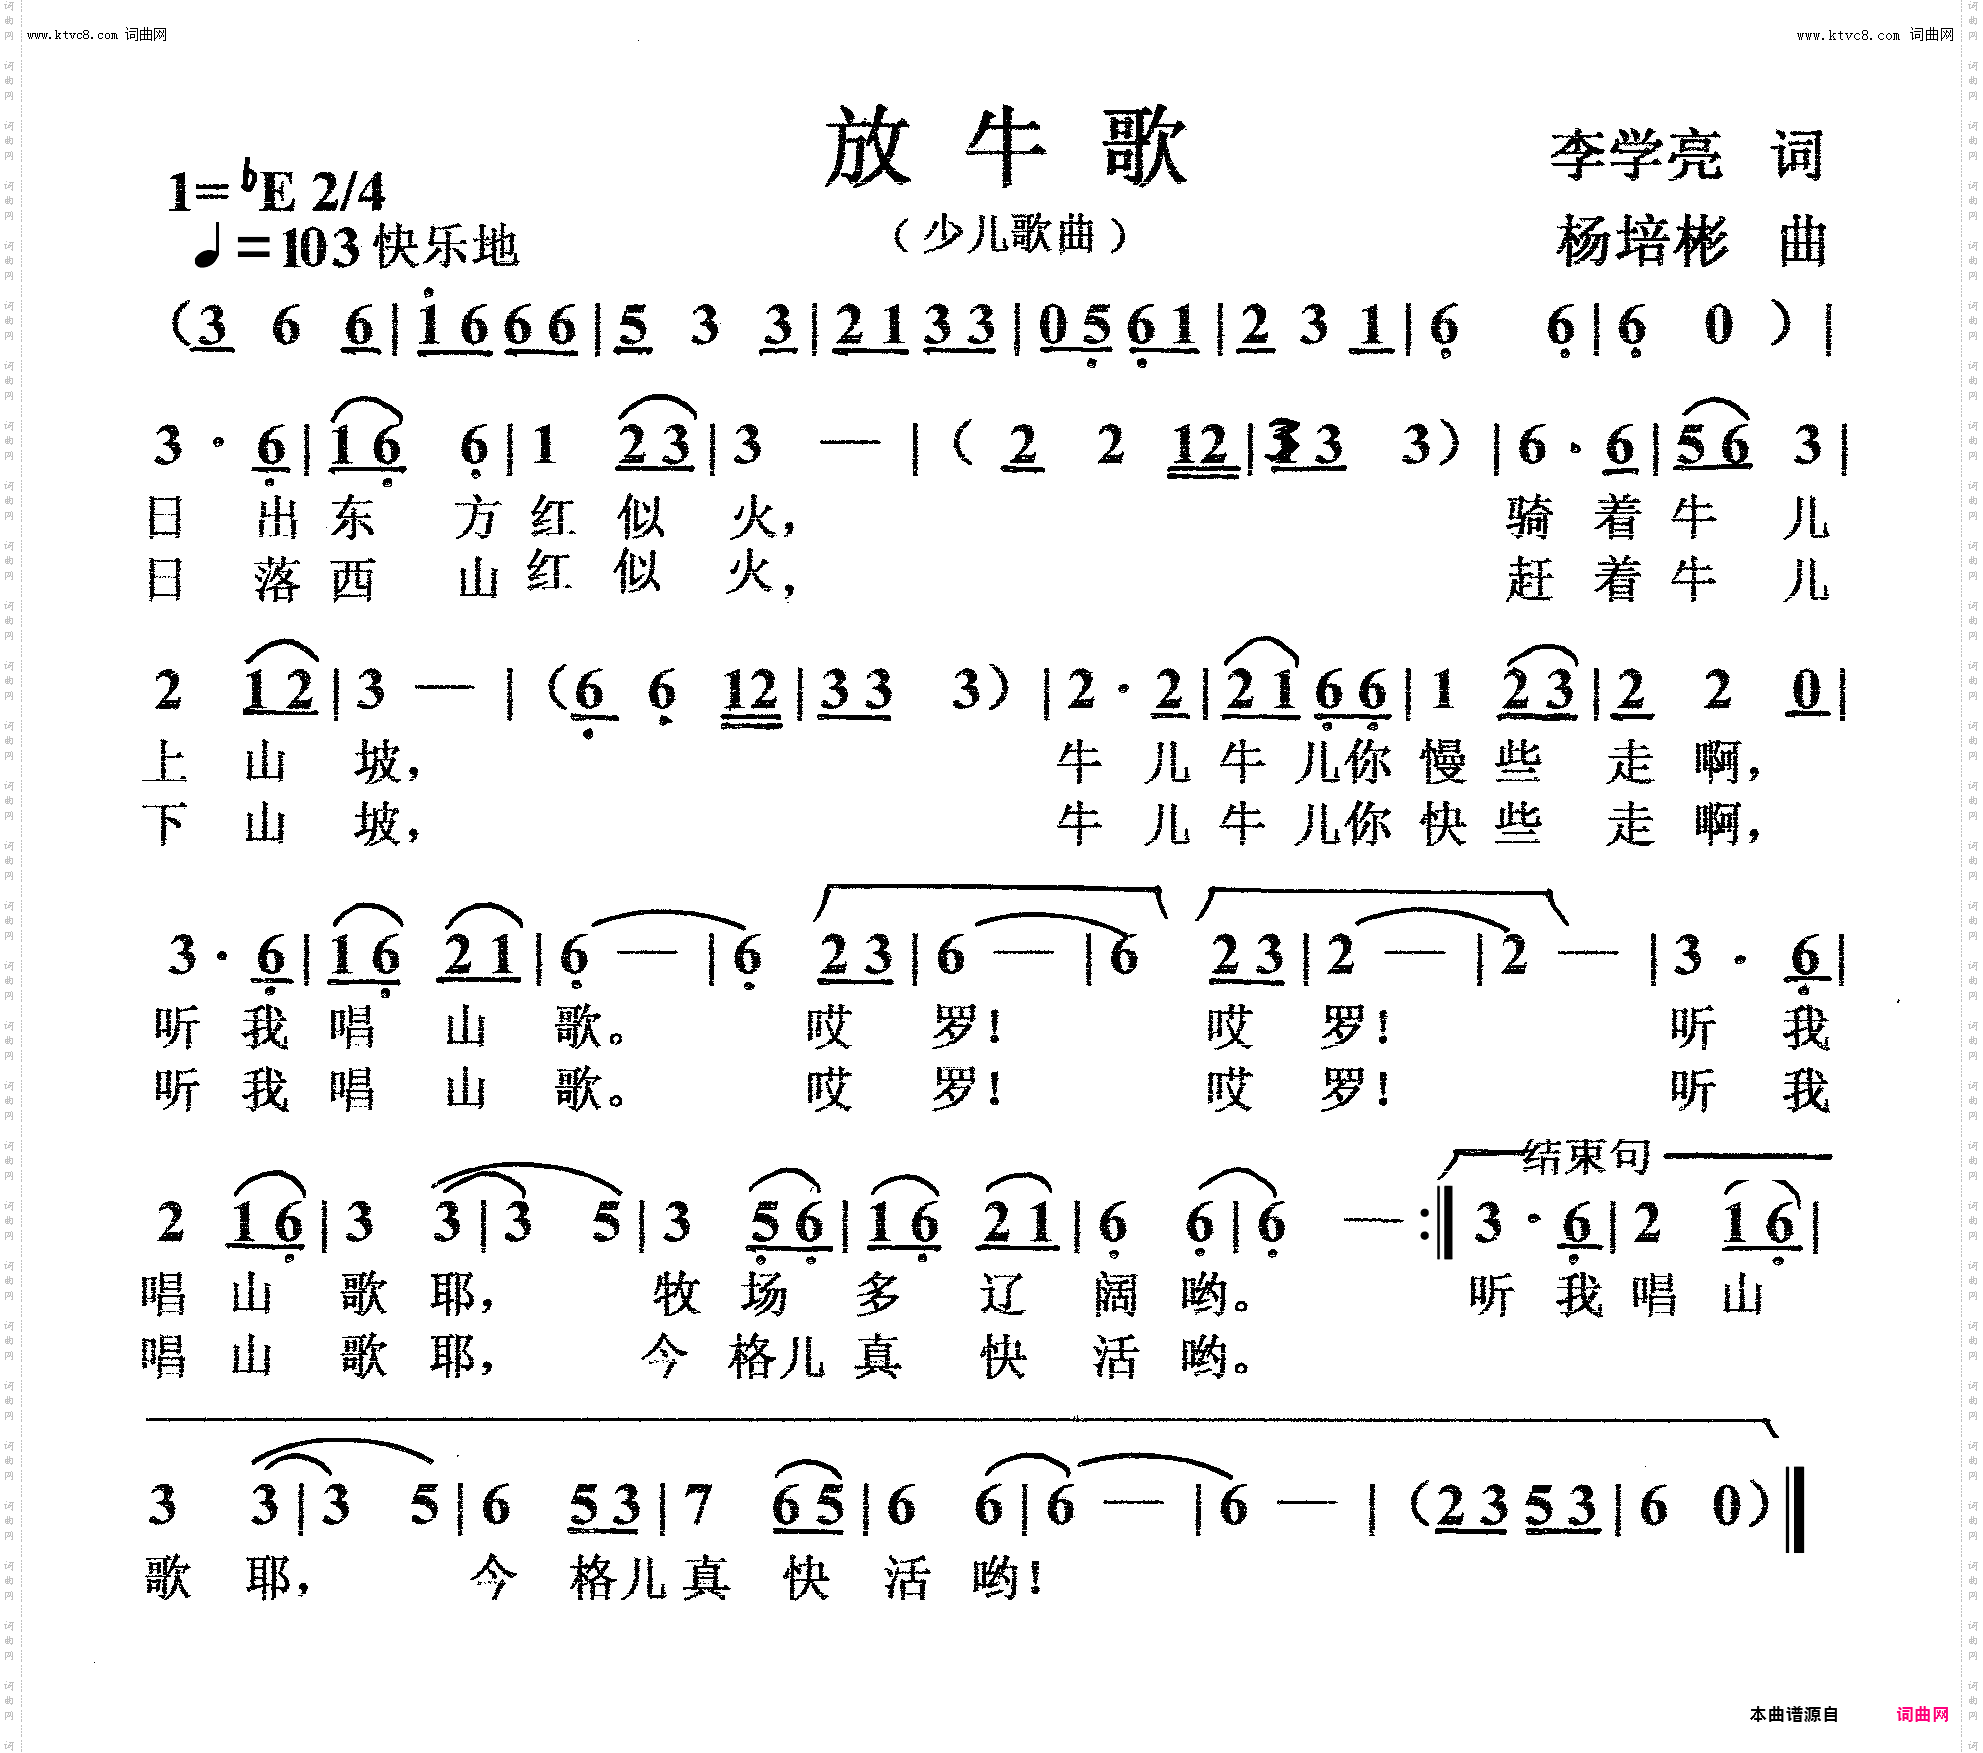 www.ktvc8.com 词曲网 www.ktvc8.com 词曲网
放牛歌
李学亮 词
1=♭E 2/4
(少儿歌曲)
杨培彬 曲
♩=103 快乐地
(3 6 6|1̇ 6 6 6|5 3 3|2 1 3 3|0 5̣ 6̣ 1|2 3 1|6̣ 6̣|6̣ 0)|
3 · 6̣|1 6̣ 6̣|1 2 3|3 —|(2 2 12|3 3 3)|6 · 6|5 6 3|
日 出 东 方 红 似 火, 骑 着 牛 儿
日 落 西 山 红 似 火, 赶 着 牛 儿
2 1 2|3 —|(6̣ 6̣ 12|3 3 3)|2 · 2|2 1 6̣ 6̣|1 2 3|2 2 0|
上 山 坡, 牛 儿 牛 儿 你 慢 些 走 啊,
下 山 坡, 牛 儿 牛 儿 你 快 些 走 啊,
3 · 6̣|1 6̣ 2 1|6̣ —|6̣ 2 3|6 —|6 2 3|2 —|2 —|3 · 6̣|
听 我 唱 山 歌。 哎 罗! 哎 罗! 听 我
听 我 唱 山 歌。 哎 罗! 哎 罗! 听 我
结束句
2 1 6̣|3 3|3 5|3 5̣ 6̣|1 6̣ 2 1|6̣ 6̣|6̣ —:‖3 · 6̣|2 1 6̣|
唱 山 歌 耶, 牧 场 多 辽 阔 哟。 听 我 唱 山
唱 山 歌 耶, 今 格 儿 真 快 活 哟。
3 3|3 5|6 5 3|7 6 5|6 6|6 —|6 —|(2 3 5 3|6 0)‖
歌 耶, 今 格 儿 真 快 活 哟!
本曲谱源自 词曲网